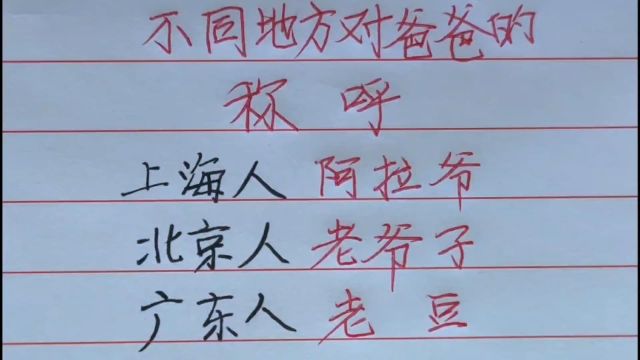 不同地方对爸爸的
称呼
上海人 阿拉爷
北京人 老爷子
广东人 老豆